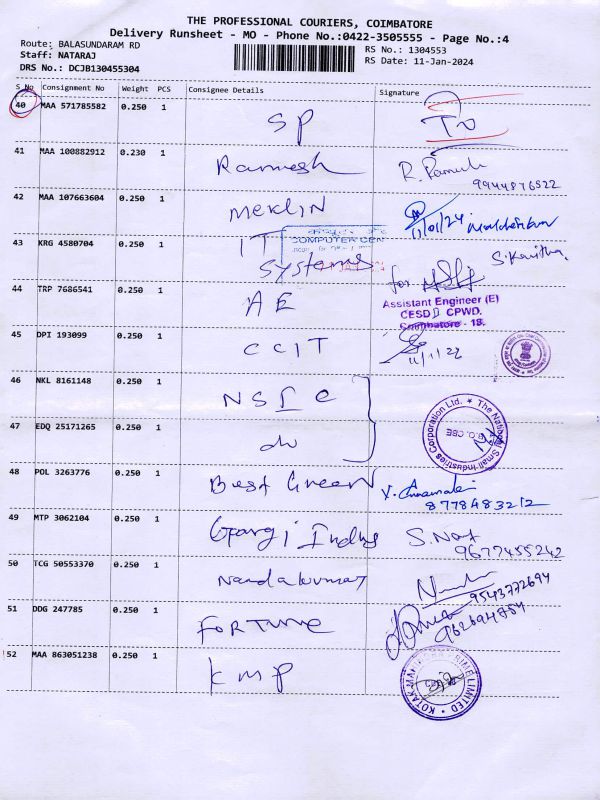 THE PROFESSIONAL COURIERS, COIMBATORE
Delivery Runsheet - MO - Phone No.:0422-3505555 - Page No.:4
Route: BALASUNDARAM RD
Staff: NATARAJ
DRS No.: DCJB130455304
RS No.: 1304553
RS Date: 11-Jan-2024
S.No Consignment No Weight PCS Consignee Details Signature
40 MAA 571785582 0.250 1 SP
41 MAA 100882912 0.230 1 Ramesh R. 
9944876522
42 MAA 107663604 0.250 1 MERLIN 11/01/24
43 KRG 4580704 0.250 1 IT Systems S. Kavitha
COMPUTER CEN
44 TRP 7686541 0.250 1 AE for
Assistant Engineer (E)
CESD CPWD.
Coimbatore - 18.
45 DPI 193099 0.250 1 CCIT
46 NKL 8161148 0.250 1 NSIC
47 EDQ 25171265 0.250 1 do
The National Small Industries Corporation Ltd.
B.O. CBE
48 POL 3263776 0.250 1 Best Green
8778483212
49 MTP 3062104 0.250 1 Gargi Indus S. Nat
9677455242
50 TCG 50553370 0.250 1 Nandakumar
9543772694
51 DDG 247785 0.250 1 FORTUNE
52 MAA 863051238 0.250 1 KMP